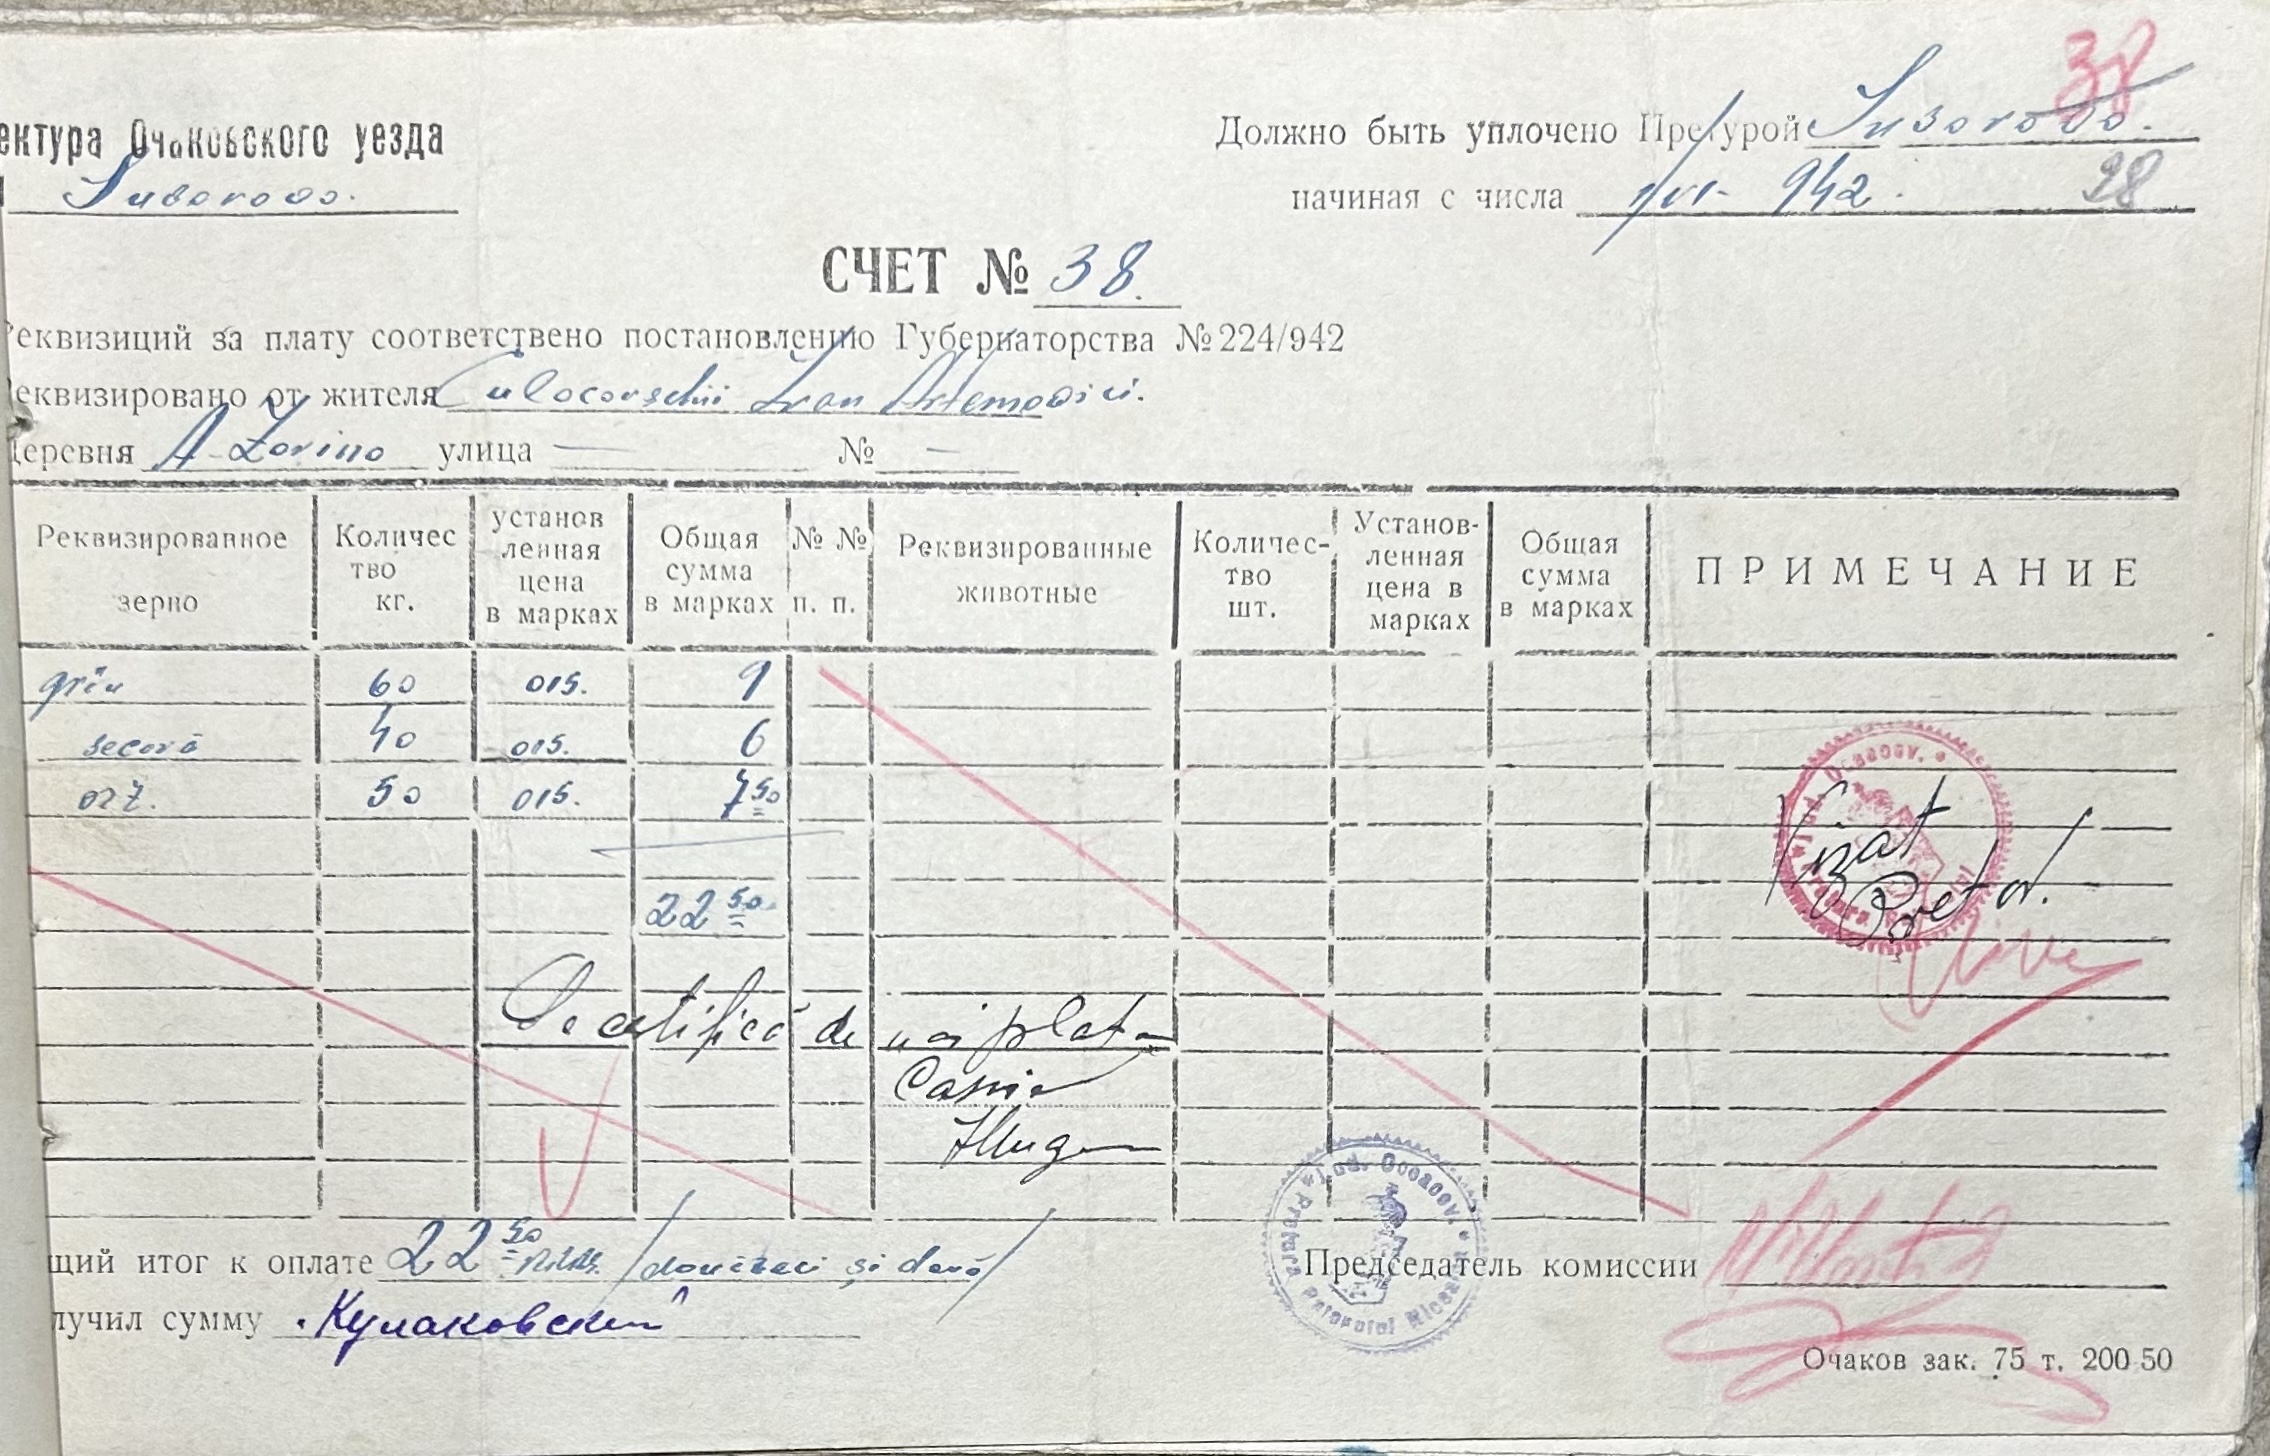 38
ектура Очаковского уезда
Suvorovo.
Должно быть уплочено Претурой Suvorovo.
начиная с числа 1/VI- 942. 38
СЧЕТ № 38.
Реквизиций за плату соответствено постановлению Губернаторства № 224/942
Реквизировано от жителя Culocovschii Ivan Artemovici.
Деревня A-Zorino улица — № —
Реквизированное зерно
Количес тво кг.
установ ленная цена в марках
Общая сумма в марках
№ № п. п.
Реквизированные животные
Количес- тво шт.
Установ- ленная цена в марках
Общая сумма в марках
ПРИМЕЧАНИЕ
grîu 60 015. 9
secară 40 015. 6
orz. 50 015. 7 50
22 50
Vizat
Pretor.
Se certifică de noi plata
Casier
щий итог к оплате 22 50 /douăzeci și două/
Председатель комиссии
лучил сумму Кулаковский
Jud. Oceacov.
Pretura
Jud. Oceacov.
Pretura Pretorul
Очаков зак. 75 т. 200-50